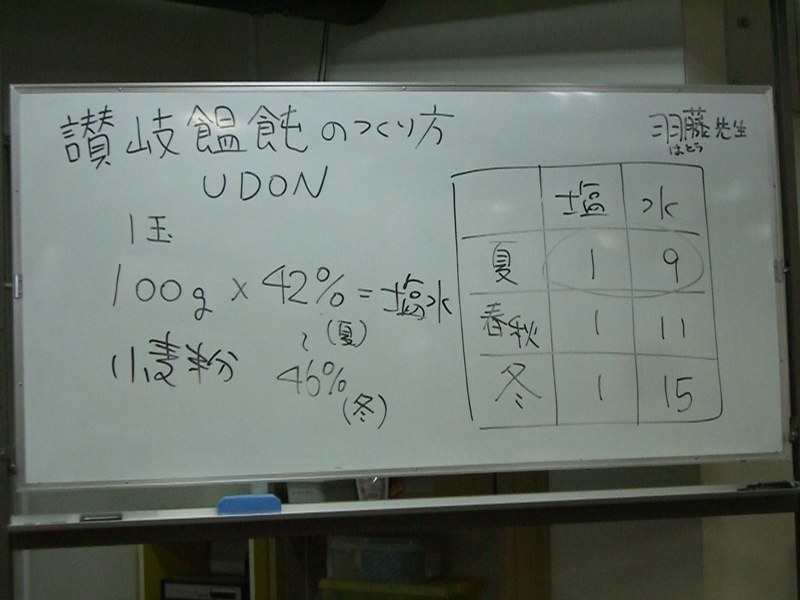 讃岐饂飩のつくり方
UDON
1玉
100g × 42% = 塩水
(夏)
〜
小麦粉 46%
(冬)
羽藤先生
はとう
塩 水
夏 1 9
春秋 1 11
冬 1 15